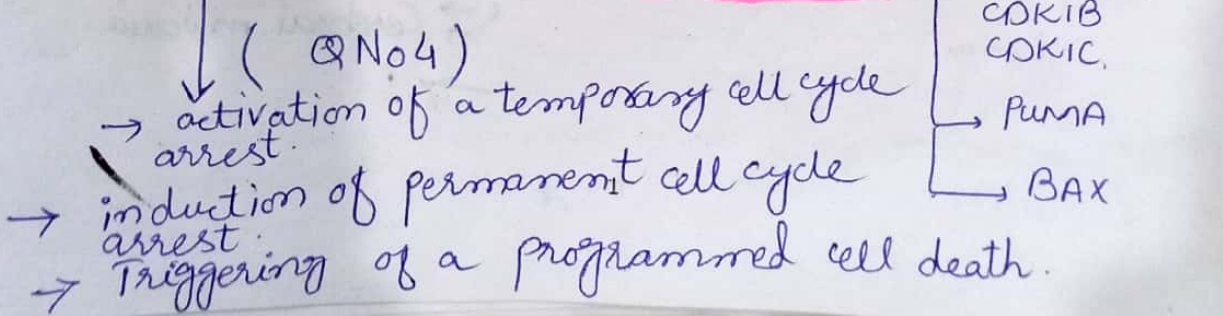 ( Q No4)
→ activation of a temporary cell cycle
arrest.
→ induction of permanent cell cycle
arrest.
→ Triggering of a programmed cell death.
CDKIB
CDKIC.
→ PUMA
→ BAX